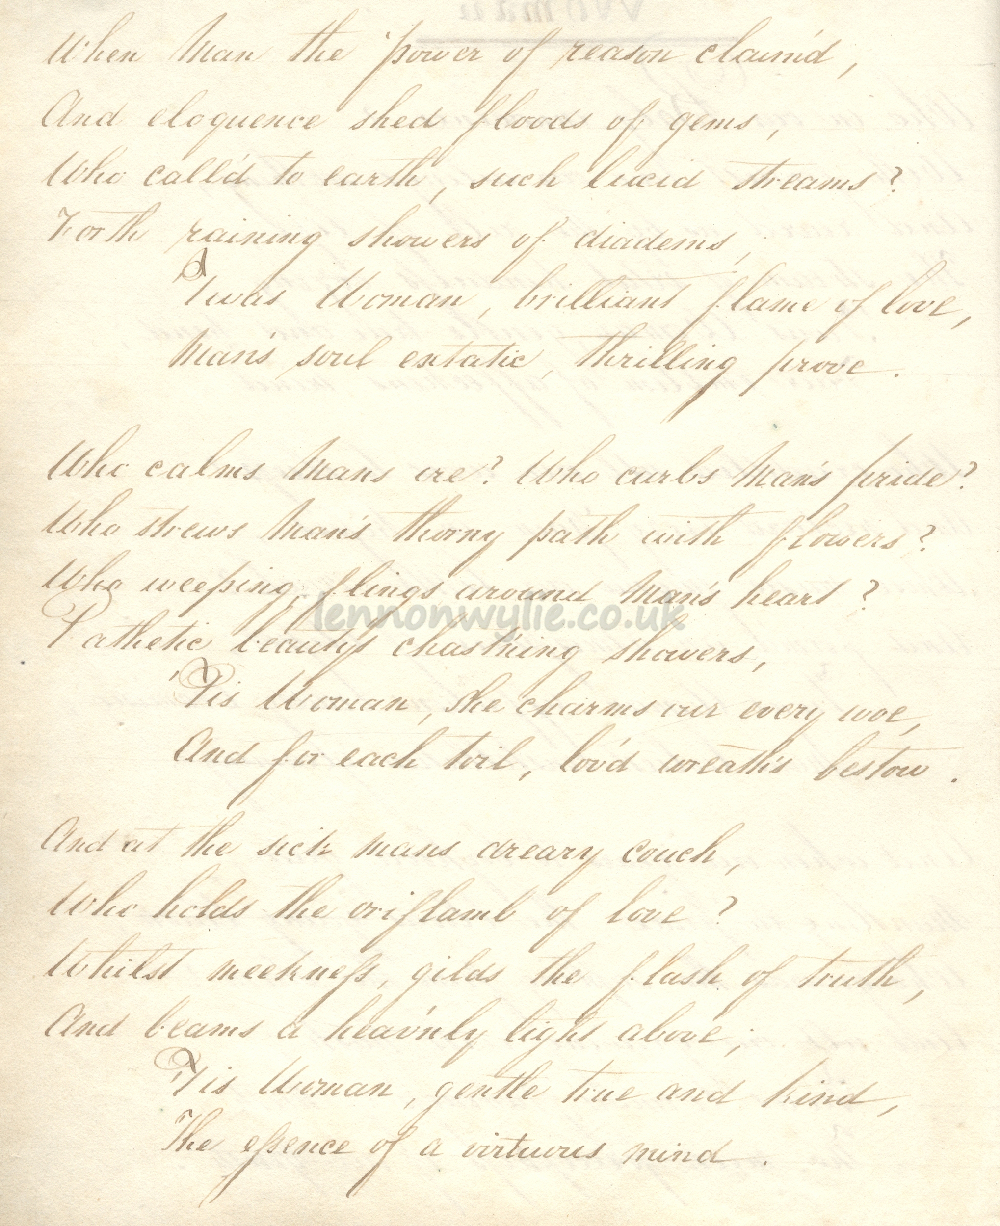 When Man the power of reason claim'd,
And eloquence shed floods of gems,
Who call'd to earth, such lucid streams?
Forth raining showers of diadems,
'Twas Woman, brilliant flame of love,
Man's soul extatic, thrilling prove.
Who calms Mans ire? Who curbs Man's pride?
Who strews Man's thorny path with flowers?
Who weeping, flings around Man's heart?
lennonwylie.co.uk
Pathetic beauty's chast'ning showers,
'Tis Woman, she charms our every woe,
And for each toil, lov'd wreath's bestow.
And at the sick mans dreary couch,
Who holds the oriflamb of love?
Whilst meekneſs, gilds the flash of truth,
And beams a heav'nly light above;
'Tis Woman, gentle true and kind,
The eſsence of a virtuous mind.